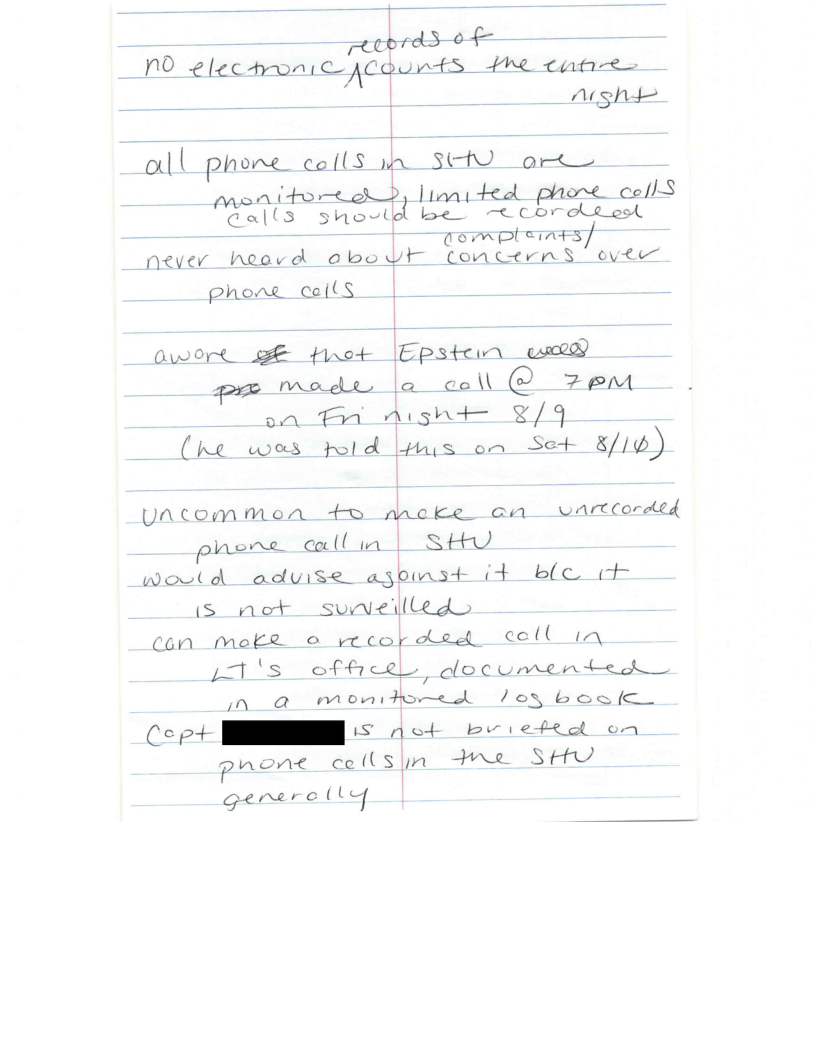 records of
no electronic ^counts the entire
night
all phone calls in SHU are
monitored, limited phone calls
calls should be recordeed
complaints/
never heard about concerns over
phone calls
aware of that Epstein
made a call @ 7 PM
on Fri night 8/9
(he was told this on Sat 8/10)
uncommon to make an unrecorded
phone call in SHU
would advise against it b/c it
is not surveilled
can make a recorded call in
LT's office, documented
in a monitored logbook
Capt is not briefed on
phone calls in the SHU
generally